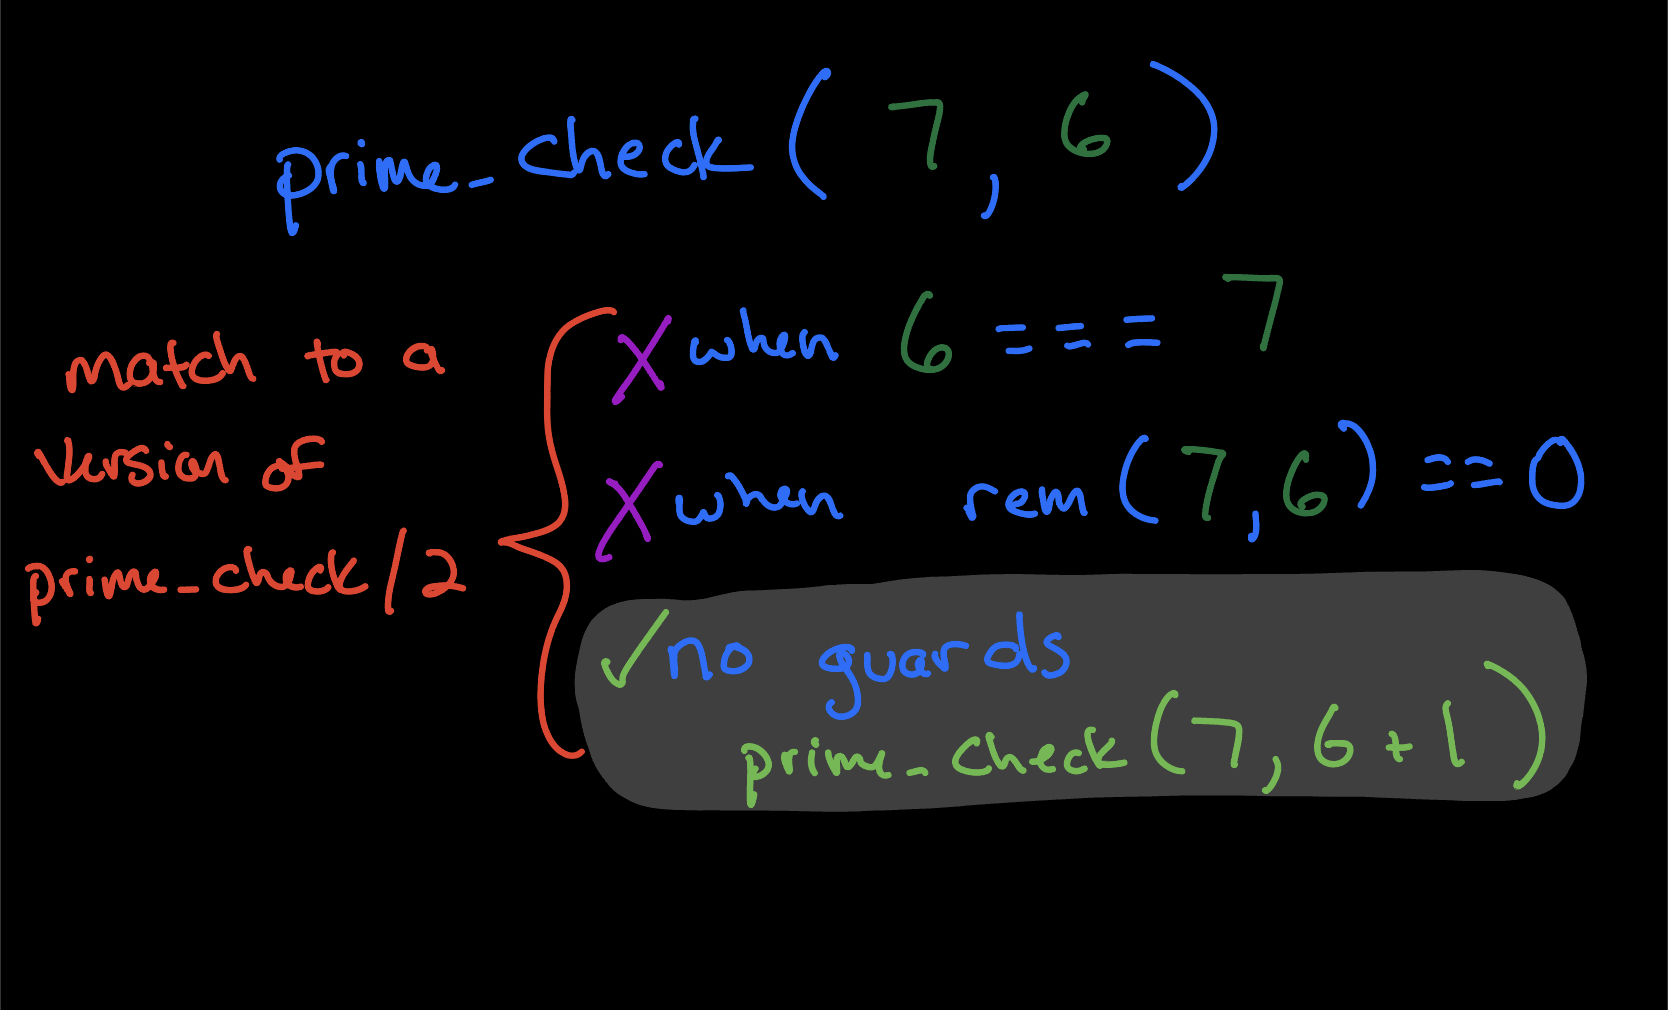 prime_check ( 7, 6 )
match to a
version of
prime_check/2
X when 6 === 7
X when rem (7,6) == 0
✓ no guards
prime_check (7, 6+1)